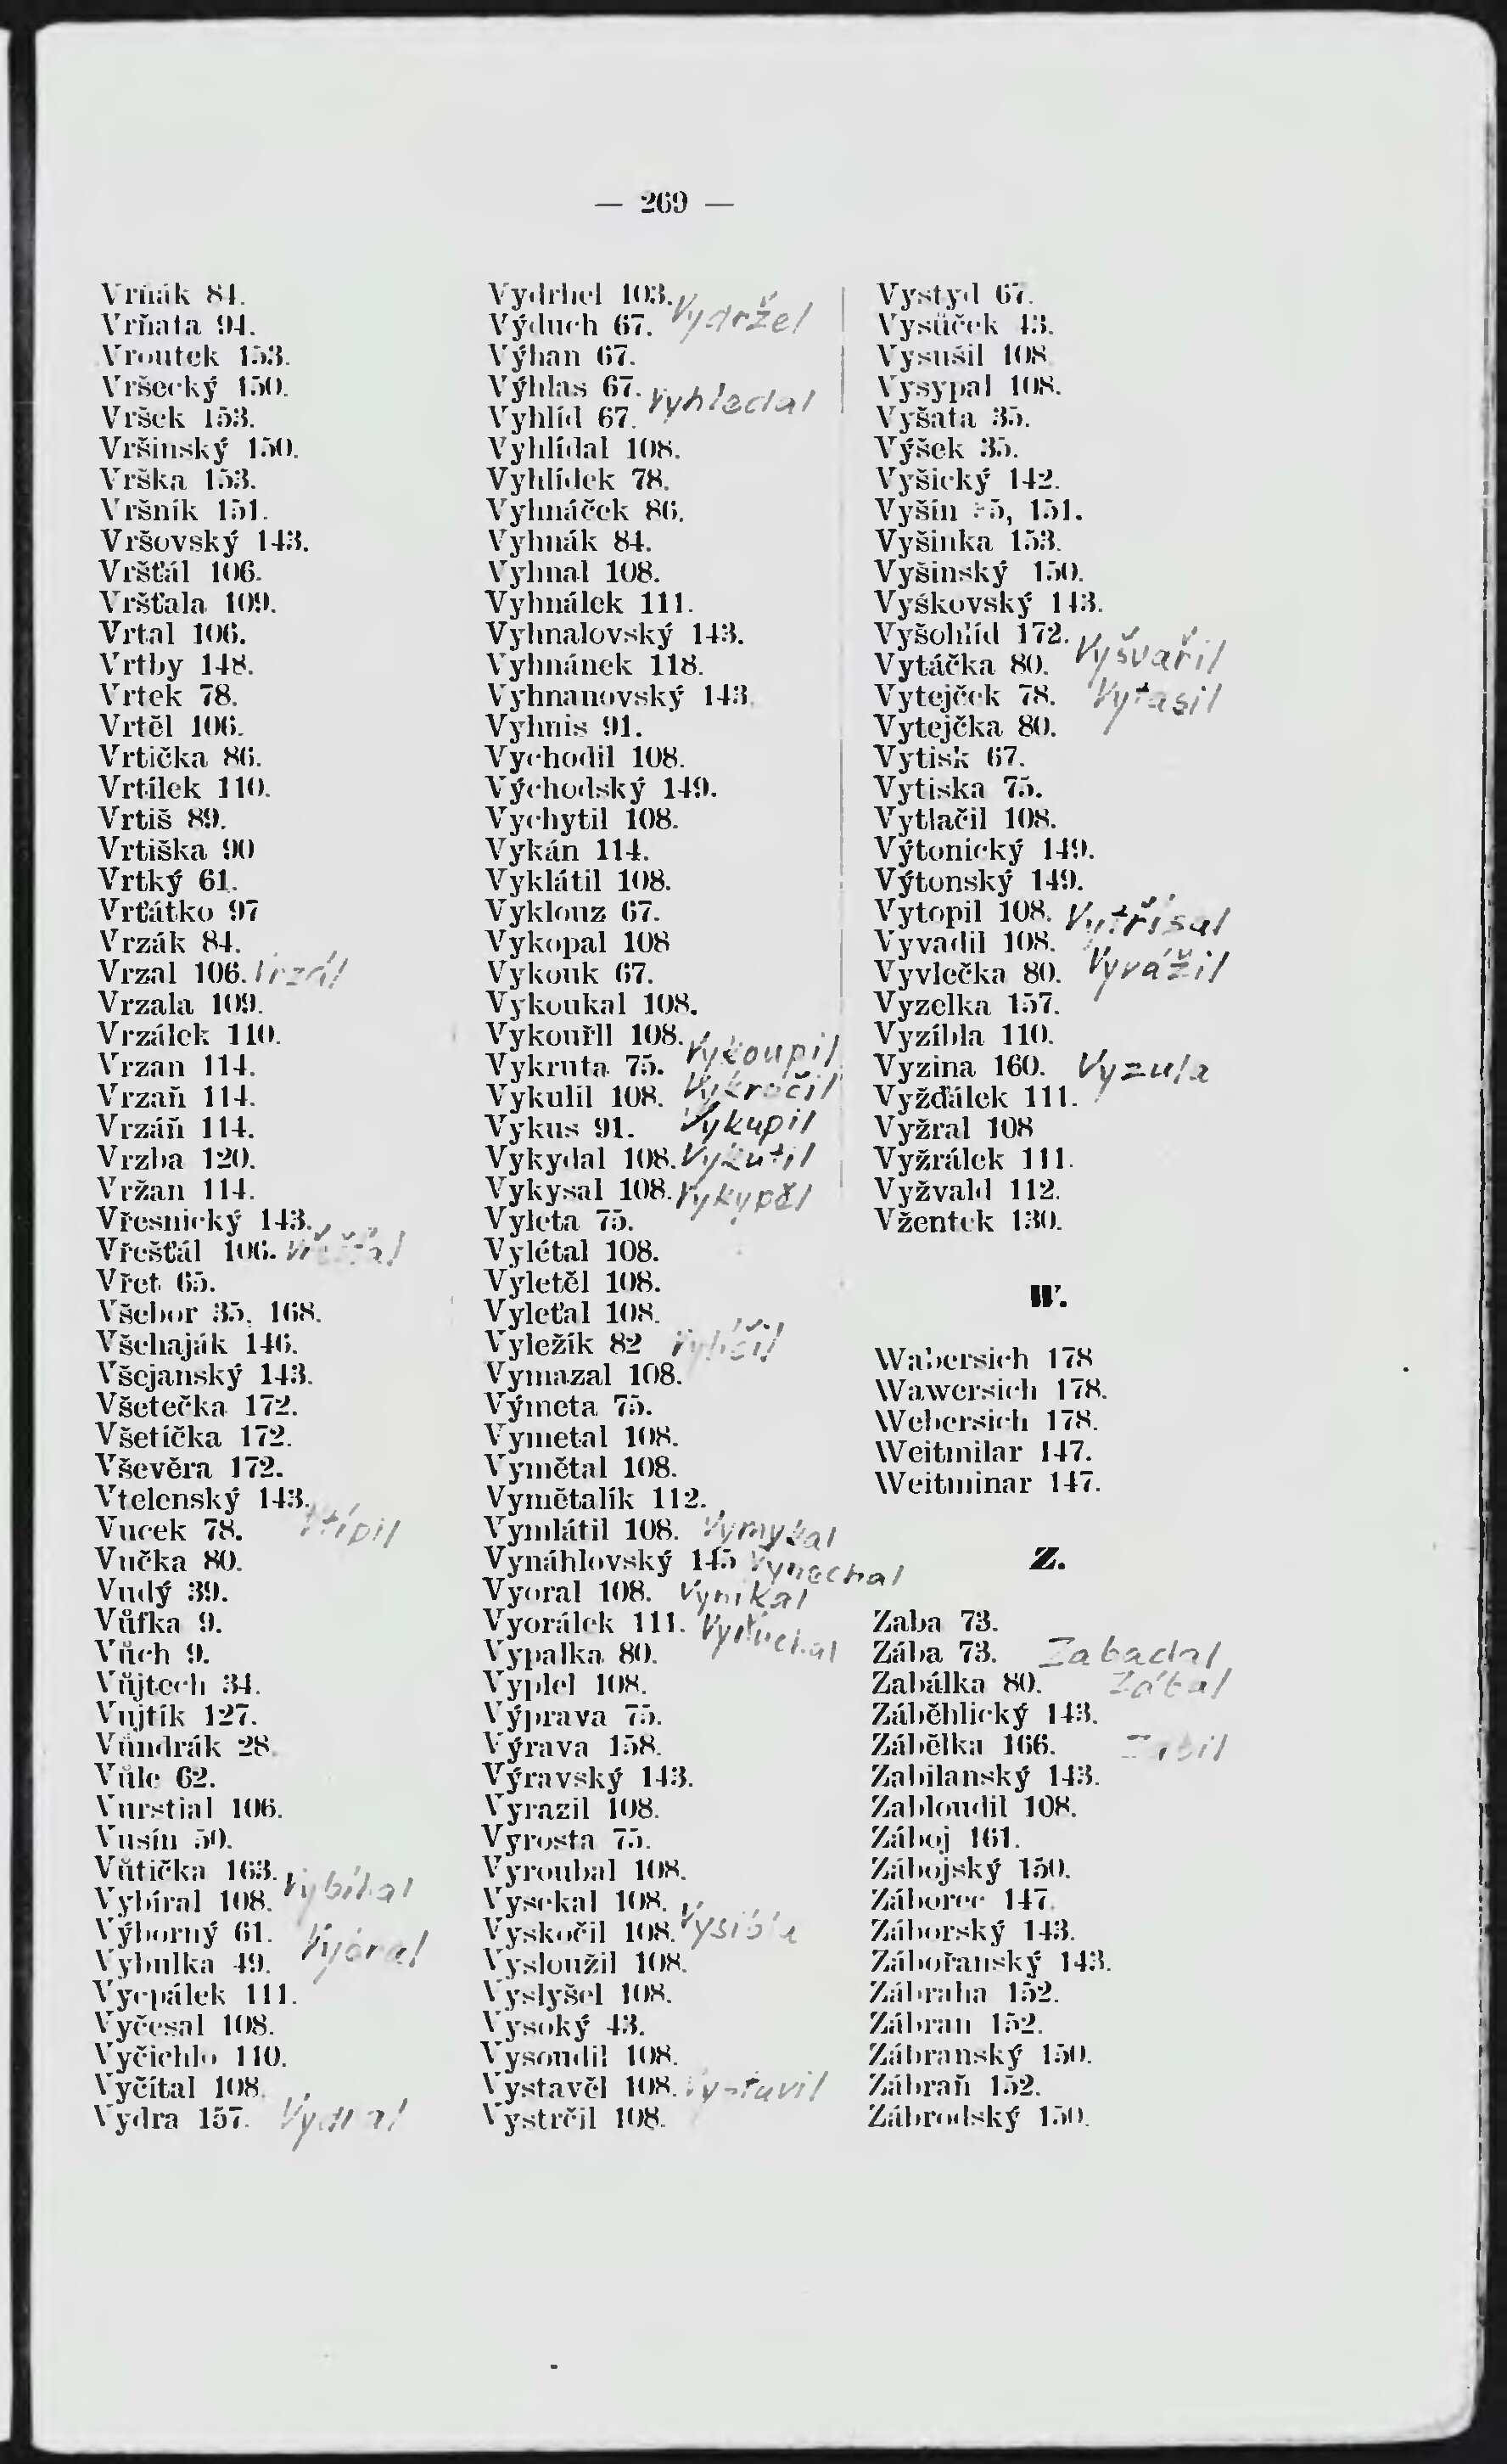 — 269 —
Vrňák 84.
Vrňata 94.
Vroutek 153.
Vršecký 150.
Vršek 153.
Vršinský 150.
Vrška 153.
Vršník 151.
Vršovský 143.
Vršťál 106.
Vršťala 109.
Vrtal 106.
Vrtby 148.
Vrtek 78.
Vrtěl 106.
Vrtička 86.
Vrtílek 110.
Vrtiš 89.
Vrtiška 90
Vrtký 61.
Vrťátko 97
Vrzák 84.
Vrzal 106. Vrzál
Vrzala 109.
Vrzálek 110.
Vrzan 114.
Vrzaň 114.
Vrzáň 114.
Vrzba 120.
Vržan 114.
Vřesnický 143.
Vřešťál 106.
Vřet 65.
Všebor 35, 168.
Všehaják 146.
Všejanský 143.
Všetečka 172.
Všetíčka 172.
Vševěra 172.
Vtelenský 143.
Vtípil
Vucek 78.
Vučka 80.
Vudý 39.
Vůfka 9.
Vůch 9.
Vůjtech 34.
Vujtík 127.
Vůndrák 28.
Vůle 62.
Vurstial 106.
Vusín 50.
Vůtička 163.
Vybíhal
Vybíral 108.
Výborný 61.
Vybral
Vybulka 49.
Vycpálek 111.
Vyčesal 108.
Vyčichlo 110.
Vyčítal 108.
Vydra 157.
Vydrhel 103.
Vydržel
Výduch 67.
Výhan 67.
Výhlas 67.
Vyhledal
Vyhlíd 67.
Vyhlídal 108.
Vyhlídek 78.
Vyhnáček 86.
Vyhnák 84.
Vyhnal 108.
Vyhnálek 111.
Vyhnalovský 143.
Vyhnánek 118.
Vyhnanovský 143.
Vyhnis 91.
Vychodil 108.
Východský 149.
Vychytil 108.
Vykán 114.
Vyklátil 108.
Vyklouz 67.
Vykopal 108
Vykouk 67.
Vykoukal 108.
Vykouřil 108.
Vykoupil
Vykruta 75.
Vykulil 108. Vykročil
Vykus 91. Vykupil
Vykydal 108. Vykutil
Vykysal 108. Vykypěl
Vyleta 75.
Vylétal 108.
Vyletěl 108.
Vyleťal 108.
Vyležík 82 Vylíčil
Vymazal 108.
Výmeta 75.
Vymetal 108.
Vymětal 108.
Vymětalík 112.
Vymlátil 108. Vymykal
Vynáhlovský 145 Vynechal
Vyoral 108. Vynikal
Vyorálek 111.
Vypalka 80.
Vyplel 108.
Výprava 75.
Výrava 158.
Výravský 143.
Vyrazil 108.
Vyrosta 75.
Vyroubal 108.
Vysekal 108.
Vyskočil 108.
Vysloužil 108.
Vyslyšel 108.
Vysoký 43.
Vysoudil 108.
Vystavěl 108. Vystavil
Vystrčil 108.
Vystyd 67.
Vysůček 43.
Vysušil 108
Vysypal 108.
Vyšata 35.
Výšek 35.
Vyšický 142.
Vyšín 35, 151.
Vyšinka 153.
Vyšinský 150.
Vyškovský 143.
Vyšohlíd 172.
Vyšvařil
Vytáčka 80.
Vytejček 78. Vytasil
Vytejčka 80.
Vytisk 67.
Vytiska 75.
Vytlačil 108.
Výtonický 149.
Výtonský 149.
Vytopil 108. Vytřísal
Vyvadil 108.
Vyvlečka 80. Vyvážil
Vyzelka 157.
Vyzíbla 110.
Vyzina 160. Vyzula
Vyžďálek 111.
Vyžral 108
Vyžrálek 111.
Vyžvald 112.
Vžentek 130.
W.
Wabersich 178
Wawersich 178.
Webersich 178.
Weitmilar 147.
Weitminar 147.
Z.
Zaba 73.
Zába 73. Zabadal
Zabálka 80. Zábal
Záběhlický 143.
Zábělka 166. Zabil
Zabilanský 143.
Zabloudil 108.
Záboj 161.
Zábojský 150.
Záborec 147.
Záborský 143.
Zábořanský 143.
Zábraha 152.
Zábran 152.
Zábranský 150.
Zábraň 152.
Zábrodský 150.